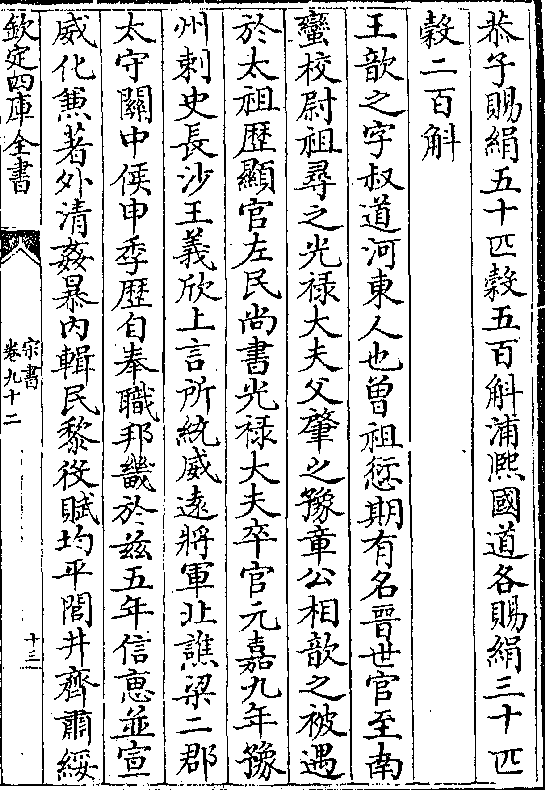 恭子賜絹五十匹穀五百斛浦熈國道各賜絹三十匹
穀二百斛
王歆之字叔道河東人也曽祖愆期有名晉世官至南
蠻校尉祖尋之光禄大夫父肇之豫章公相歆之被遇
於太祖歴顯官左民尚書光禄大夫卒官元嘉九年豫
州刺史長沙王義欣上言所統威逺將軍北譙梁二郡
太守闗中侯申季歴自奉職邦畿於兹五年信惠並宣
威化兼著外清姦暴内輯民黎役賦均平閭井齊肅綏
欽定四庫全書
宋書
卷九十二
十三